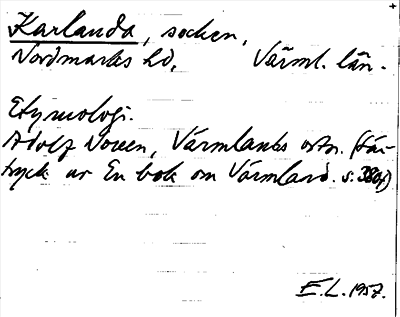 Karlanda, socken,
Nordmarks hd. Värml. län.
Etymologi.
Adolf Noreen, Värmlands ortn. (Sär-
tryck ur En bok om Värmland. s. 380 f)
E.L. 1957.